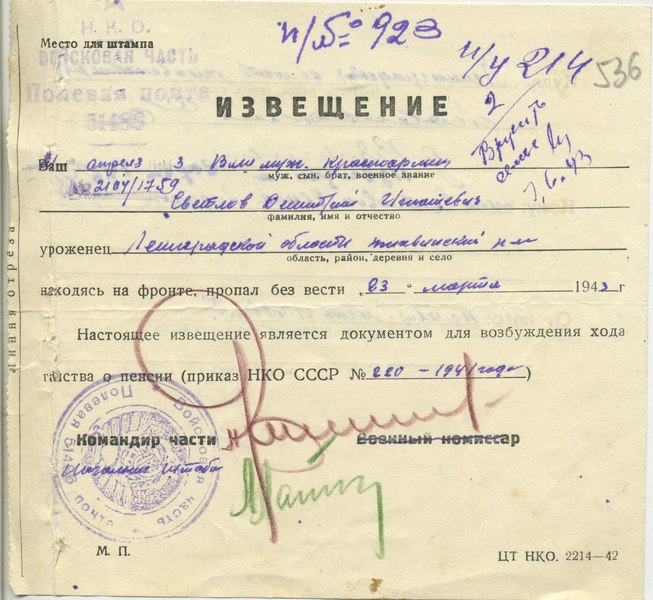 п/№ 923
Н. К. О.
Место для штампа
ВОЙСКОВАЯ ЧАСТЬ
п/у 214
536
Полевая почта
51486
2
Вручить
ИЗВЕЩЕНИЕ
7.6.43
Ваш апреля 3 Ваш муж. Красноармеец
муж, сын, брат, военное звание
№ 2104/1759
Светлов Дмитрий Игнатьевич
фамилия, имя и отчество
уроженец Ленинградской области р-н
область, район, деревня и село
находясь на фронте, пропал без вести „23“ марта 1943 г
Настоящее извещение является документом для возбуждения хода
тайства о пенсии (приказ НКО СССР № 220 – 1941 года)
Командир части Военный комиссар
Начальник штаба
Войсковая часть Полевая почта 51486
М. П.
ЦТ НКО. 2214—42
Линия отреза